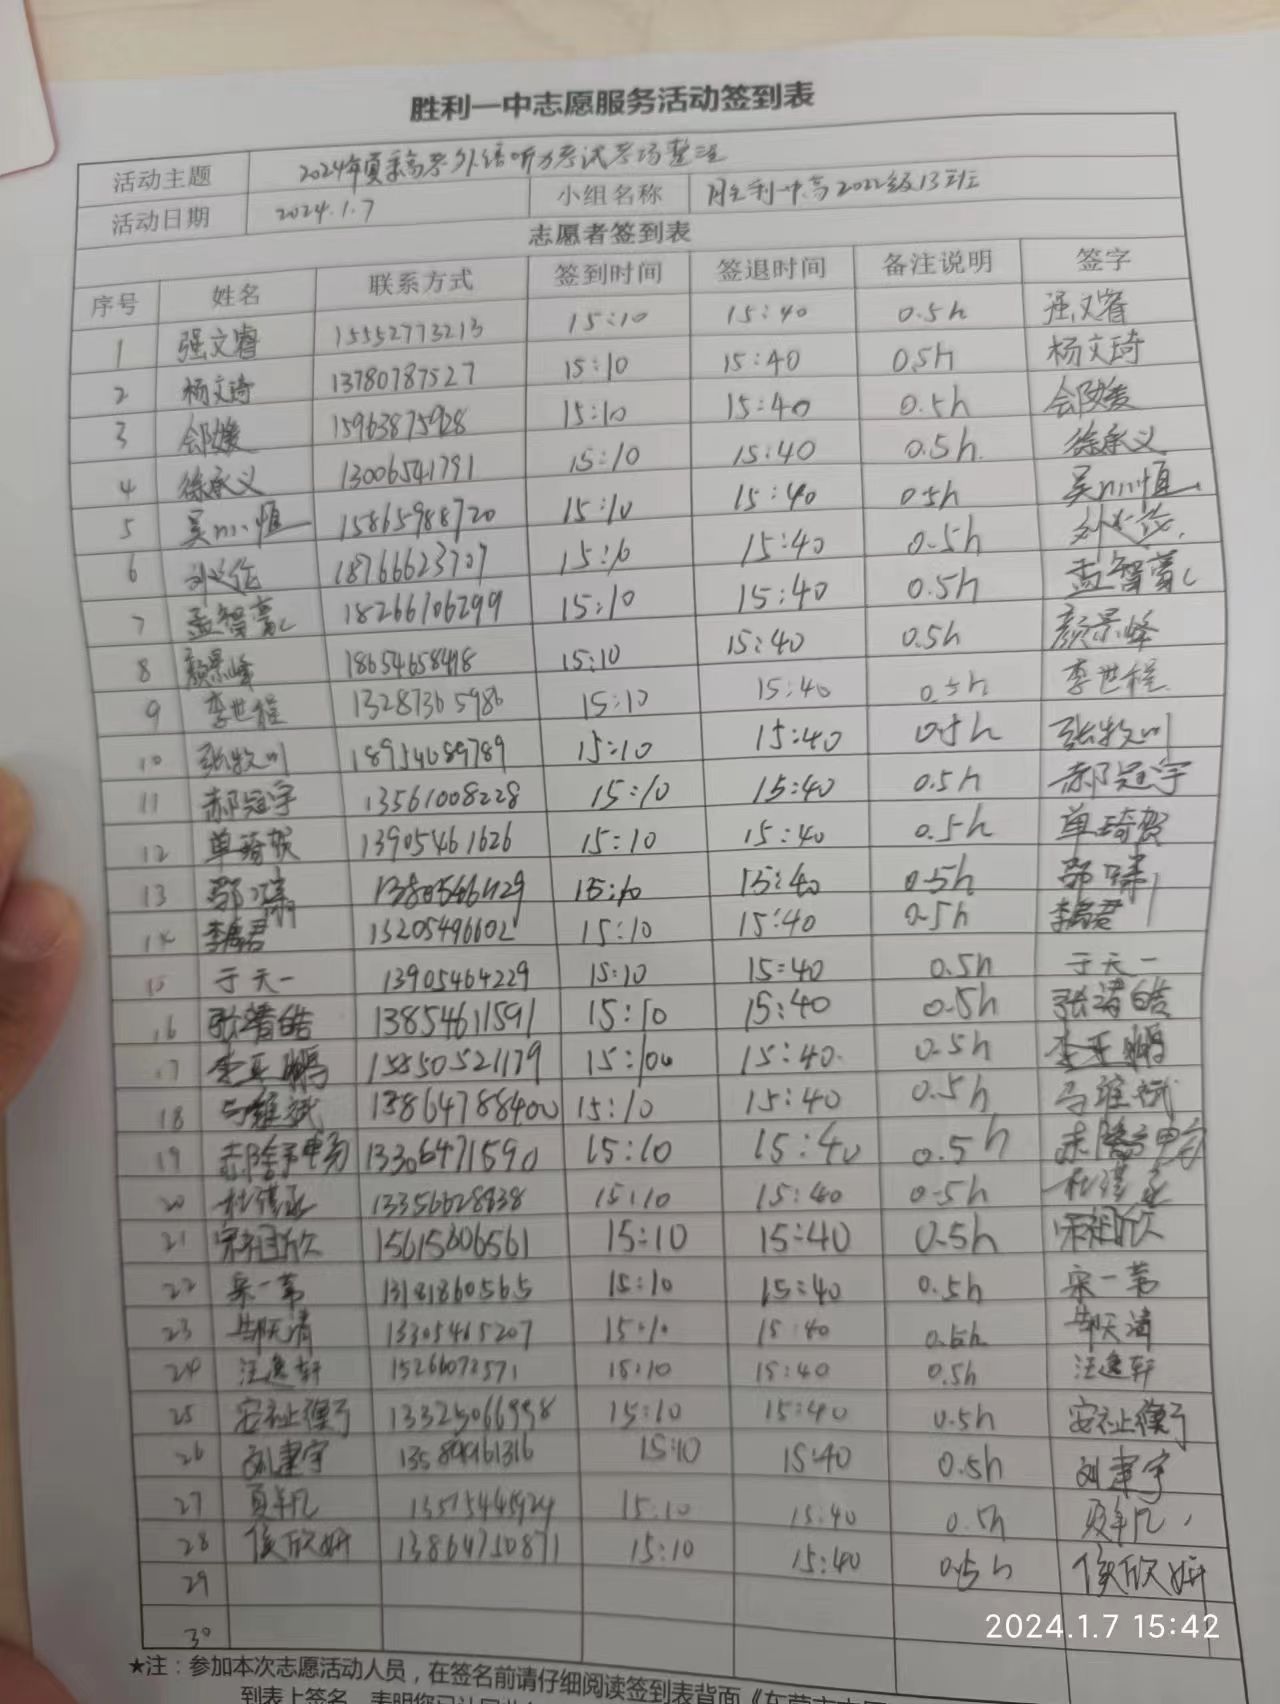 胜利一中志愿服务活动签到表
活动主题 2024年夏季高考外语听力考试考场整理
活动日期 2024.1.7 小组名称 胜利一中高2022级13班
志愿者签到表
序号 姓名 联系方式 签到时间 签退时间 备注说明 签字
1 强文睿 15552773213 15:10 15:40 0.5h 强文睿
2 杨文琦 13780787527 15:10 15:40 0.5h 杨文琦
3 15963875928 15:10 15:40 0.5h
4 徐承义 13006541791 15:10 15:40 0.5h. 徐承义
5 15865988720 15:10 15:40 0.5h
6 18766623707 15:10 15:40 0.5h
7 18266106299 15:10 15:40 0.5h
8 颜景峰 18654658418 15:10 15:40 0.5h 颜景峰
9 李世程 13287365986 15:10 15:40 0.5h 李世程
10 张牧川 18954689789 15:10 15:40 0.5h 张牧川
11 郝冠宇 13561008228 15:10 15:40 0.5h 郝冠宇
12 单琦贺 13905461626 15:10 15:40 0.5h 单琦贺
13 15:10 15:40 0.5h
14 13205496602 15:10 15:40 0.5h
15 于天一 13905464229 15:10 15:40 0.5h 于天一
16 张清皓 13854611591 15:10 15:40 0.5h 张清皓
17 李亚鹏 15:10 15:40. 0.5h 李亚鹏
18 马维斌 13864788400 15:10 15:40 0.5h 马维斌
19 13306471590 15:10 15:40 0.5h
20 13356628838 15:10 15:40 0.5h
21 宋相欣 15615606561 15:10 15:40 0.5h 宋相欣
22 宋一苇 13181860565 15:10 15:40 0.5h 宋一苇
23 13305465207 15:10 15:40 0.5h
24 汪逸轩 15:10 15:40 0.5h 汪逸轩
25 13325066998 15:10 15:40 0.5h
26 刘建宇 13589961316 15:10 15:40 0.5h 刘建宇
27 15:10 15:40 0.5h
28 侯欣妍 13864750871 15:10 15:40 0.5h 侯欣妍
29
30
2024.1.7 15:42
★注：参加本次志愿活动人员，在签名前请仔细阅读签到表背面《东营市志愿
到表上签名，表明您已认同